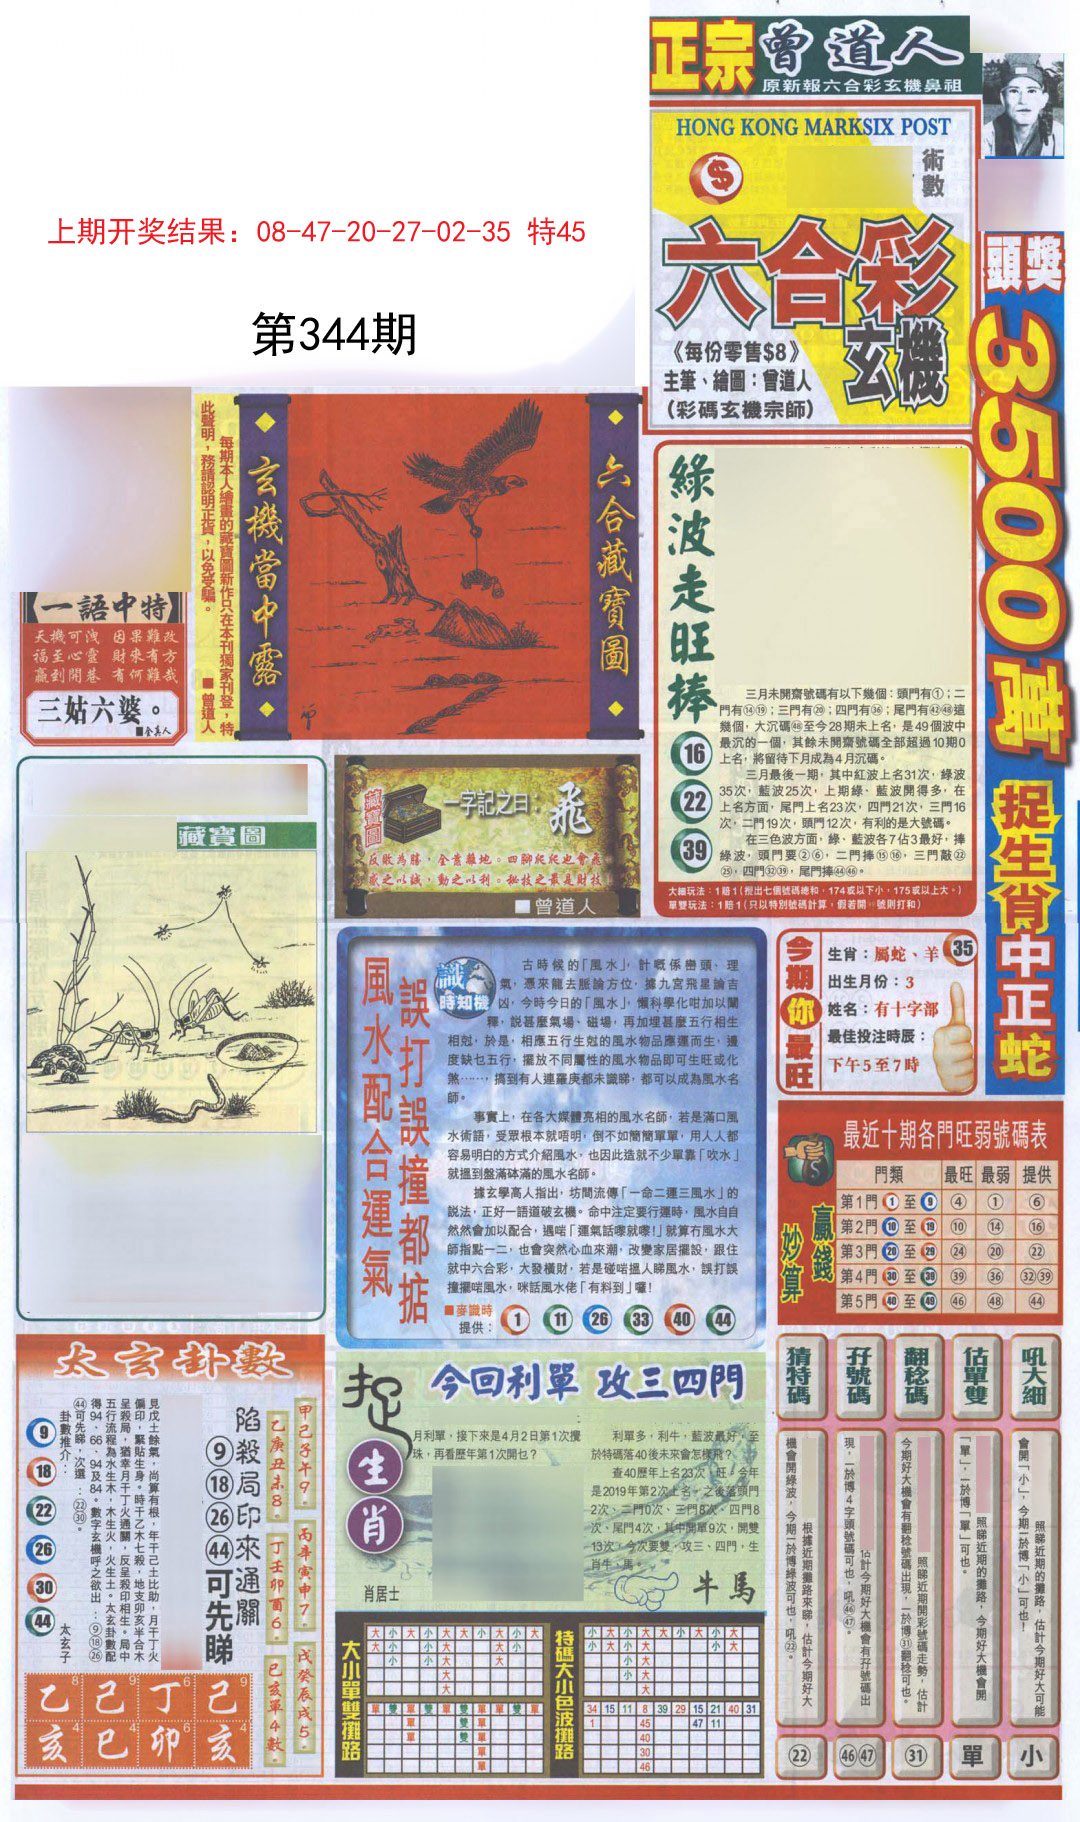 正宗曾道人
原新報六合彩玄機鼻祖
HONG KONG MARKSIX POST
術數
六合彩
玄機
《每份零售$8》
主筆、繪圖：曾道人
（彩碼玄機宗師）
頭獎
3500萬
捉生肖中正蛇
上期开奖结果：08-47-20-27-02-35 特45
第344期
一語中特
天機可洩 因果難改
福至心靈 財來有方
贏到開巷 有何難哉
三姑六婆。
每期本人繪畫的藏寶圖新作只在本刊獨家刊登，特
此聲明，務請認明正貨，以免受騙。
■曾道人
玄機當中露
六合藏寶圖
綠波走旺捧
16
22
39
三月未開齋號碼有以下幾個：頭門有①；二
門有⑭⑲；三門有⑳；四門有㊱；尾門有㊷㊽這
幾個，大沉碼㊽至今28期未上名，是49個波中
最沉的一個，其餘未開齋號碼全部超過10期0
上名，將留待下月成為4月沉碼。
三月最後一期，其中紅波上名31次，綠波
35次，藍波25次，上期綠、藍波開得多，在
上名方面，尾門上名23次，四門21次，三門16
次，二門19次，頭門12次，有利的是大號碼。
在三色波方面，綠、藍波各7佔3最好，捧
綠波，頭門要②⑥，二門捧⑮⑯，三門敲㉒
㉕，四門㉜㊴，尾門捧㊹㊻。
大細玩法：1賠1(攪出七個號碼總和，174或以下小，175或以上大。)
藏寶圖
藏寶圖
一字記之曰：飛
反敗為勝，全靠離地。四腳爬爬也會飛
■曾道人
風水配合運氣
誤打誤撞都掂
識時知機
古時候的「風水」，計嘅係巒頭、理
氣，憑來龍去脈論方位，據九宮飛星論吉
凶，今時今日的「風水」，懶科學化咁加以闡
釋，說甚麼氣場、磁場，再加埋甚麼五行相生
相剋，於是，相應五行生剋的風水物品應運而生，邊
度缺乜五行，擺放不同屬性的風水物品即可生旺或化
煞……，搞到有人連羅庚都未識睇，都可以成為風水名
師。
事實上，在各大媒體亮相的風水名師，若是滿口風
水術語，受眾根本就唔明，倒不如簡簡單單，用人人都
容易明白的方式介紹風水，也因此造就不少單靠「吹水」
就搵到盤滿砵滿的風水名師。
據玄學高人指出，坊間流傳「一命二運三風水」的
說法，正好一語道破玄機。命中注定要行運時，風水自自
然然會加以配合，遇啱「運氣話嚟就嚟!」就算冇風水大
師指點一二，也會突然心血來潮，改變家居擺設，跟住
就中六合彩，大發橫財，若是碰啱搵人睇風水，誤打誤
撞擺啱風水，咪話風水佬「有料到」囉!
■麥識時
提供： 1 11 26 33 40 44
今期你最旺
35
生肖：屬蛇、羊
出生月份：3
姓名：有十字部
最佳投注時辰：
下午5至7時
最近十期各門旺弱號碼表
贏錢妙算
門類 最旺 最弱 提供
第1門①至⑨ ④ ① ⑥
第2門⑩至⑲ ⑩ ⑭ ⑯
第3門⑳至㉙ ㉔ ⑳ ㉒
第4門㉚至㊴ ㊴ ㊱ ㉜㊴
第5門㊵至㊾ ㊻ ㊽ ㊹
太玄卦數
甲己子午9。
乙庚丑未8。
丙辛寅申7。
丁壬卯酉6。
戊癸辰戌5。
巳亥單4數。
陷殺局印來通關
⑨⑱㉖㊹可先睇
見戊土餘氣，尚算有根，年干己土比助，月干丁火
偏印，緊貼生身。時干乙木七殺，地支卯亥半合木
呈殺局，猶幸月干丁火通關，反呈殺印相生。局中
五行流程為水生木，木生火，火生土。太玄卦數配
得94、66、94及84。數字玄機呼之欲出：⑨⑱㉖
㊹可先睇，次選：㉒㉚。
卦數推介：
太玄子
9
18
22
26
30
44
乙 己 丁 己
亥 巳 卯 亥
捉生肖
今回利單 攻三四門
月利單，接下來是4月2日第1次攪
珠，再看歷年第1次開乜？
肖居士
利單多，利牛，藍波最好。至
於特碼落40後未來會怎樣飛？
查40歷年上名23次，旺，今年
是2019年第2次上名，之後落頭門
2次、二門0次、三門8次、四門8
次、尾門4次，其中開單9次，開雙
13次，今次要雙，攻三、四門，生
肖牛、馬。
牛馬
大小單雙攤路
特碼大小色波攤路
34 15 11 8 39 29 15 21 40 31
1 45 47 11
40
30
46
猜特碼
孖號碼
翻稔碼
估單雙
吼大細
根據近期攤路來睇，估計今期好大
機會開綠波，今期一於博綠波可也，吼㉒。
估計今期好大機會有孖號碼出
現，一於博4字頭號碼可也，吼㊻㊼。
照睇近期開彩號碼走勢，估計
今期好大機會有翻稔號碼出現，一於博㉛翻稔可也。
照睇近期的攤路，今期好大機會開
「單」，一於博「單」可也。
照睇近期的攤路，估計今期好大可能
會開「小」，今期一於博「小」可也！
㉒
㊻㊼
㉛
單
小